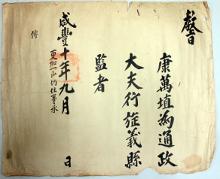 康萬埴為通政
大夫行旌義縣
監者
咸豐十年九月 日